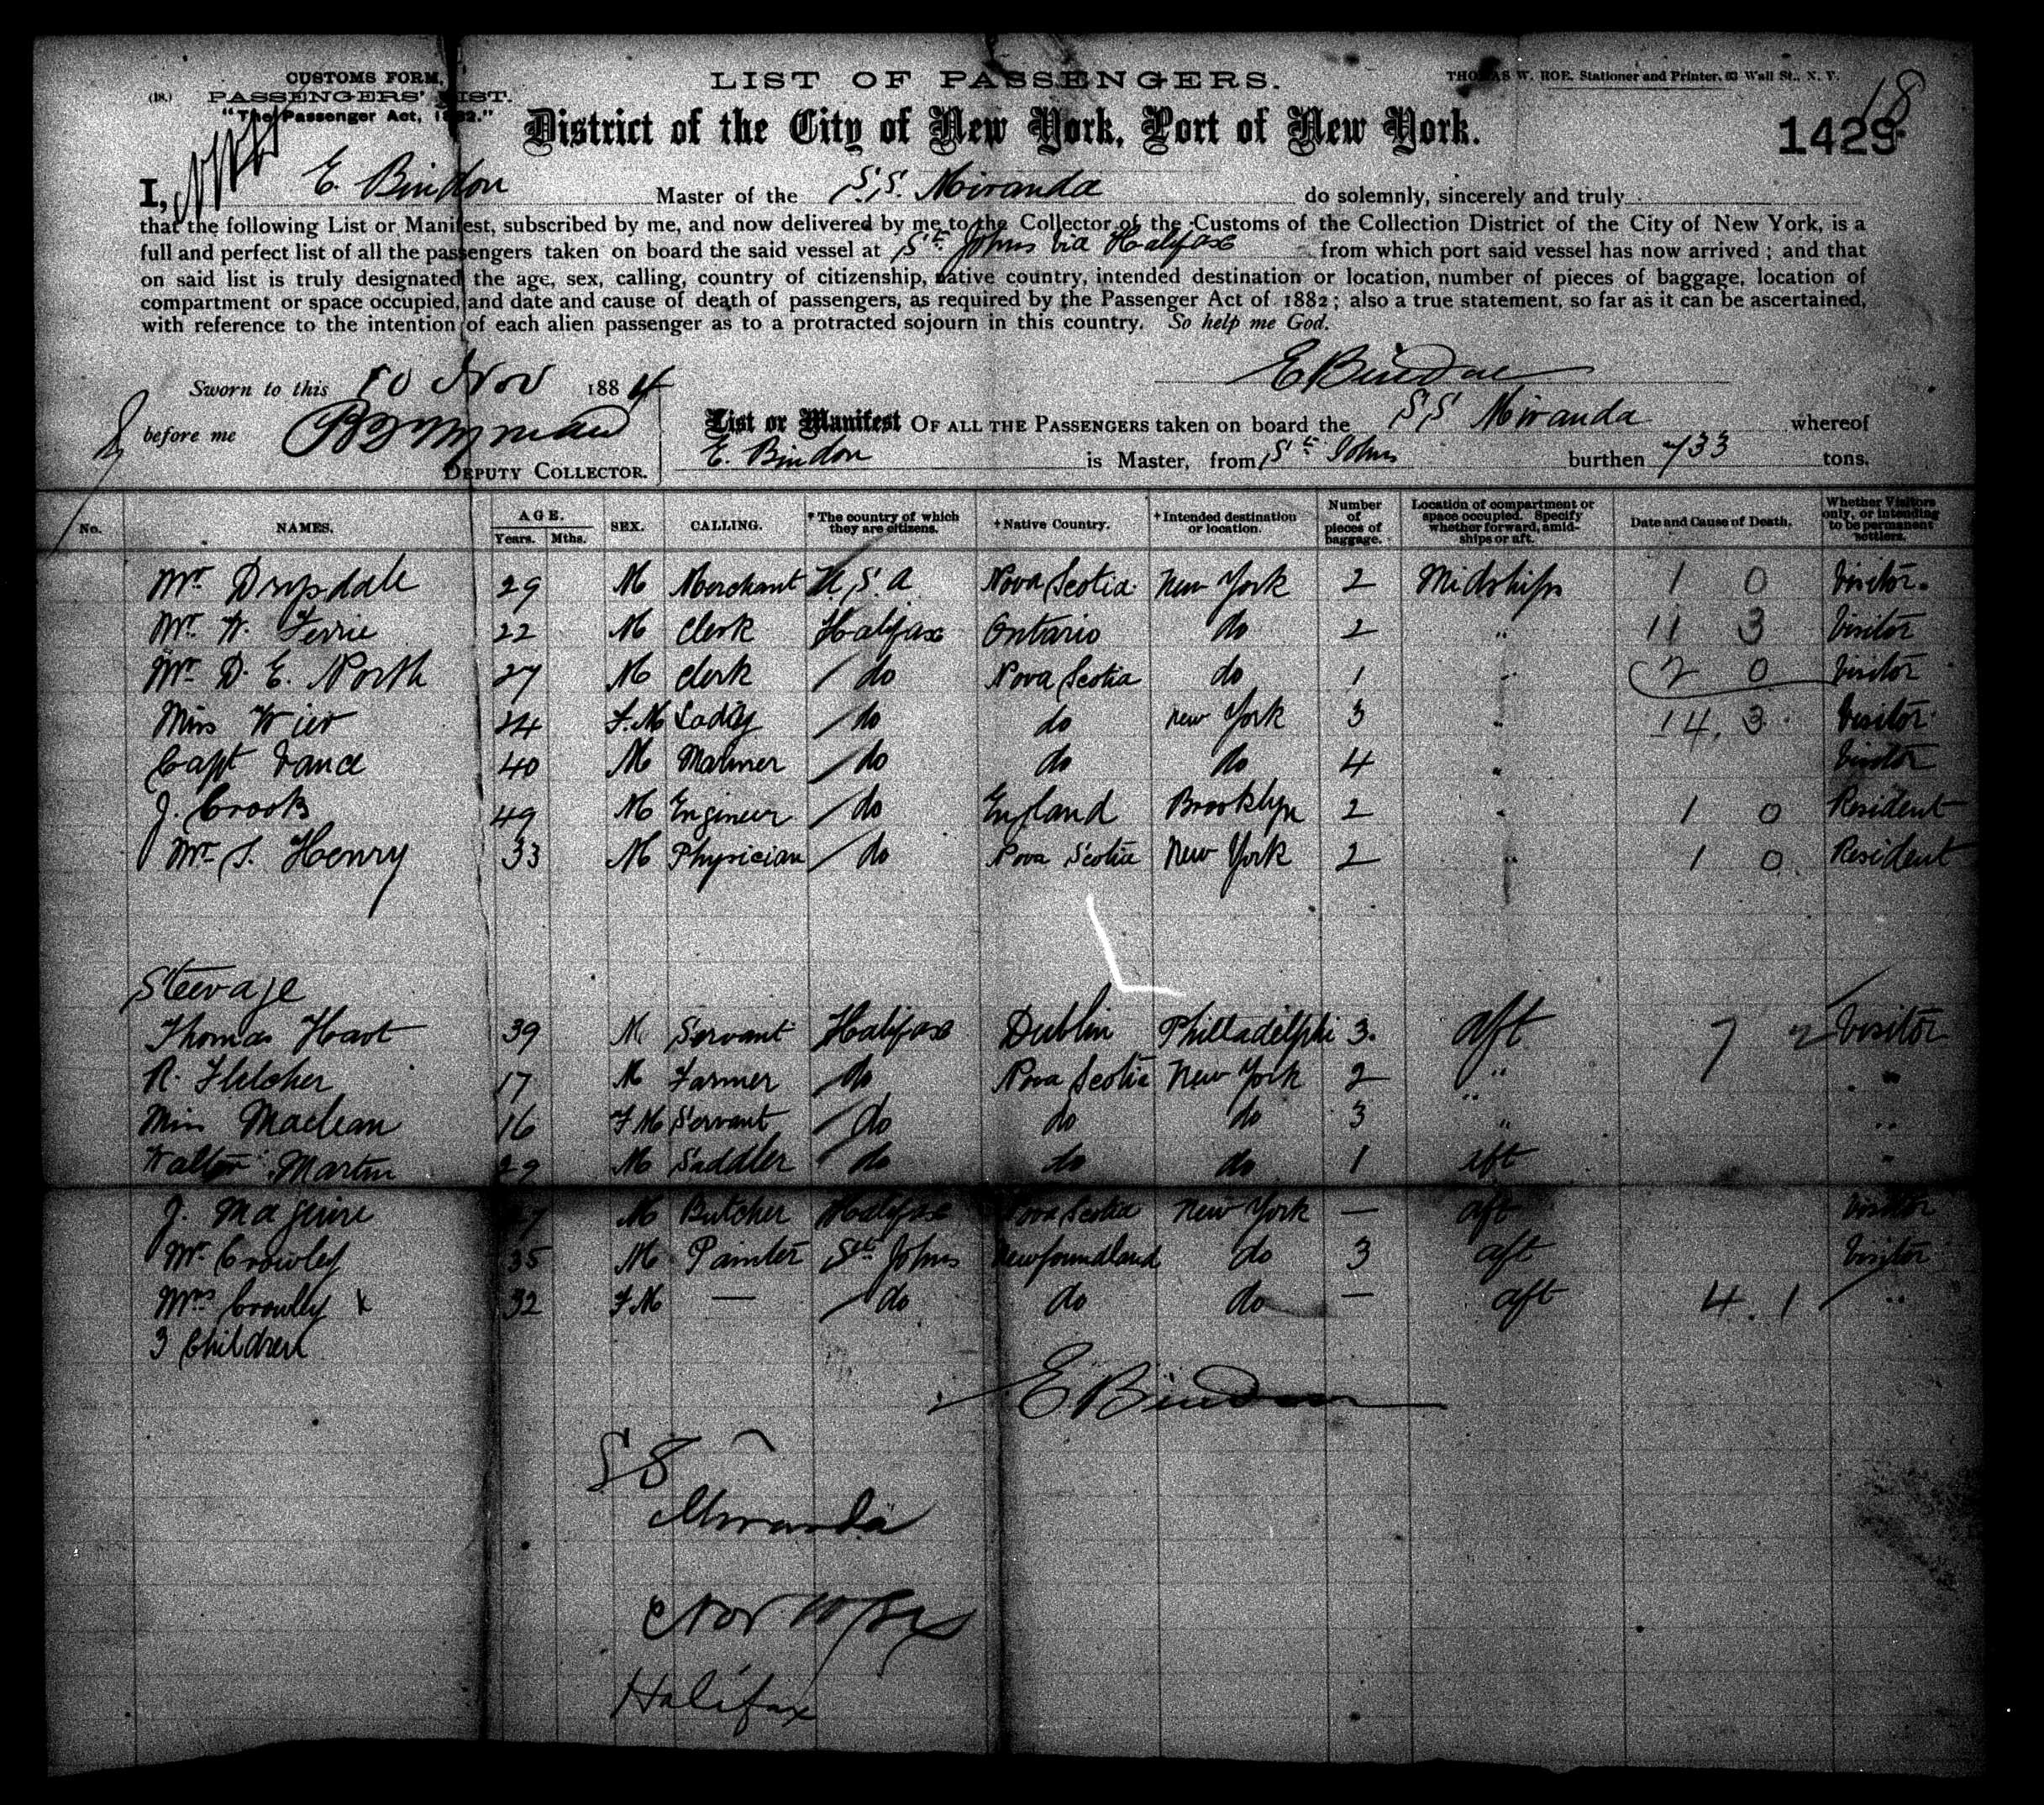 CUSTOMS FORM,
(18.) PASSENGERS' LIST.
"The Passenger Act, 1882."
LIST OF PASSENGERS.
THOMAS W. ROE, Stationer and Printer, 63 Wall St., N. Y.
18
District of the City of New York, Port of New York.
1429
I, E. Bindon Master of the S.S. Miranda do solemnly, sincerely and truly
that the following List or Manifest, subscribed by me, and now delivered by me to the Collector of the Customs of the Collection District of the City of New York, is a
full and perfect list of all the passengers taken on board the said vessel at St Johns via Halifax from which port said vessel has now arrived; and that
on said list is truly designated the age, sex, calling, country of citizenship, native country, intended destination or location, number of pieces of baggage, location of
compartment or space occupied, and date and cause of death of passengers, as required by the Passenger Act of 1882; also a true statement, so far as it can be ascertained,
with reference to the intention of each alien passenger as to a protracted sojourn in this country. So help me God.
E Bindon
Sworn to this 10 Nov 1884
before me
DEPUTY COLLECTOR.
List or Manifest OF ALL THE PASSENGERS taken on board the SS Miranda whereof
E. Bindon is Master, from St Johns burthen 733 tons.
No. NAMES. AGE. Years. Mths. SEX. CALLING. *The country of which they are citizens. +Native Country. +Intended destination or location. Number of pieces of baggage. Location of compartment or space occupied. Specify whether forward, amidships or aft. Date and Cause of Death. Whether Visitors only, or intending to be permanent settlers.
Mr Drysdale 29 M Merchant U.S.A Nova Scotia New York 2 Midships 1 0 Visitor.
Mr. W. Ferrie 22 M Clerk Halifax Ontario do 2 " 11 3 Visitor
Mr D. E. North 27 M Clerk / do Nova Scotia do 1 " 2 0 Visitor
Miss Wier 24 F.M Lady / do do New York 3 " 14. 3 Visitor
Capt Vance 40 M Mariner / do do do 4 " Visitor
J. Crook 49 M Engineer / do England Brooklyn 2 " 1 0 Resident
Mr S. Henry 33 M Physician / do Nova Scotia New York 2 " 1 0 Resident
Steerage
Thomas Hart 39 M Servant Halifax Dublin Philladelphi 3. aft 7 2 Visitor
R. Fletcher 17 M Farmer / do Nova Scotia New York 2 " "
Miss Maclean 16 FM Servant / do do do 3 " "
Walter Martin 29 M Saddler / do do do 1 aft "
J. Maguire 27 M Butcher Halifax Nova Scotia New York — aft Visitor
Mr. Crowley 35 M Painter St Johns Newfoundland do 3 aft Visitor
Mrs Crowley 32 FM — / do do do — aft 4. 1 "
3 Children
E Bindon
SS
Miranda
Nov 10/84
Halifax